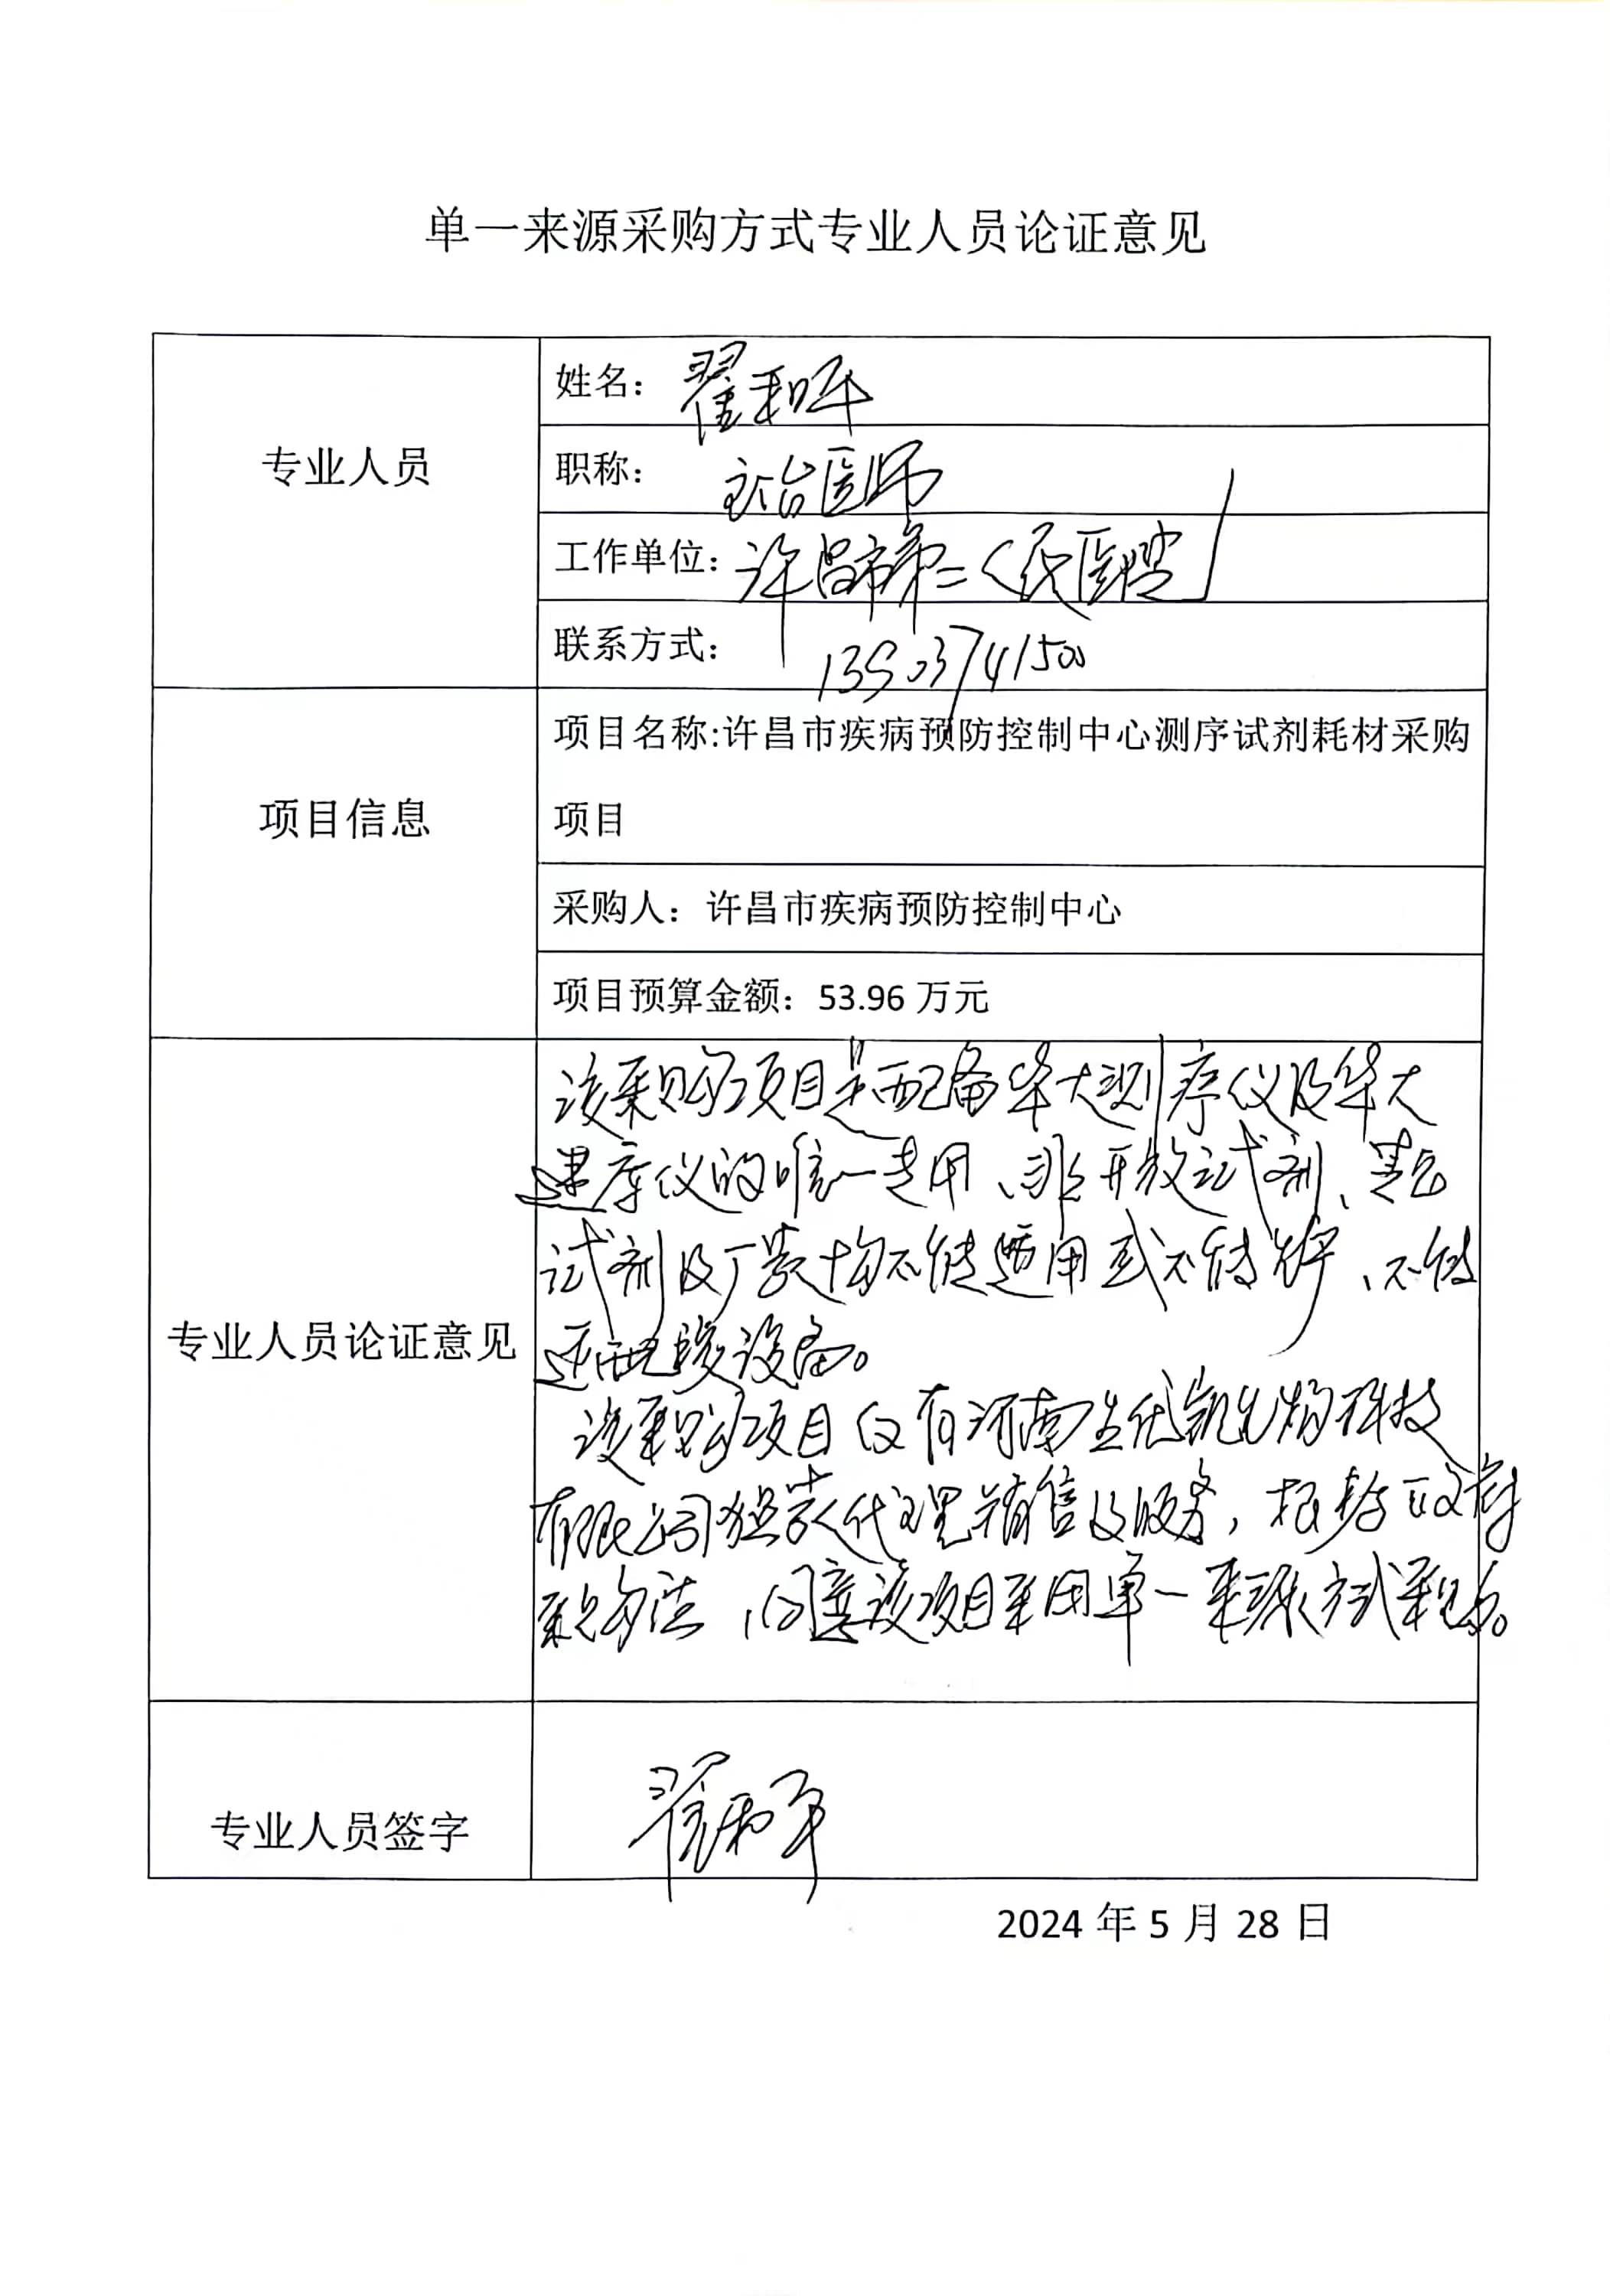 单一来源采购方式专业人员论证意见
专业人员
姓名：翟和平
职称：主治医师
工作单位：许昌市第二人民医院
联系方式：13503741500
项目信息
项目名称:许昌市疾病预防控制中心测序试剂耗材采购
项目
采购人：许昌市疾病预防控制中心
项目预算金额：53.96 万元
专业人员论证意见
该采购项目是配备华大测序仪及华大
建库仪的唯一专用、非开放试剂、其它
试剂及厂家均不能适用或不能替代、不能
适配该设备。
该采购项目仅有河南生优凯生物科技
有限公司独家代理销售及服务，根据政府
采购法，同意该项目采用单一来源方式采购。
专业人员签字
翟和平
2024 年 5 月 28 日